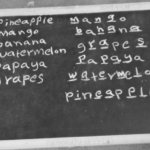 Pineapple
Mango
banana
watermelon
Papaya
Grapes
mango
banana
grapes
Papaya
watermelo
pineappl